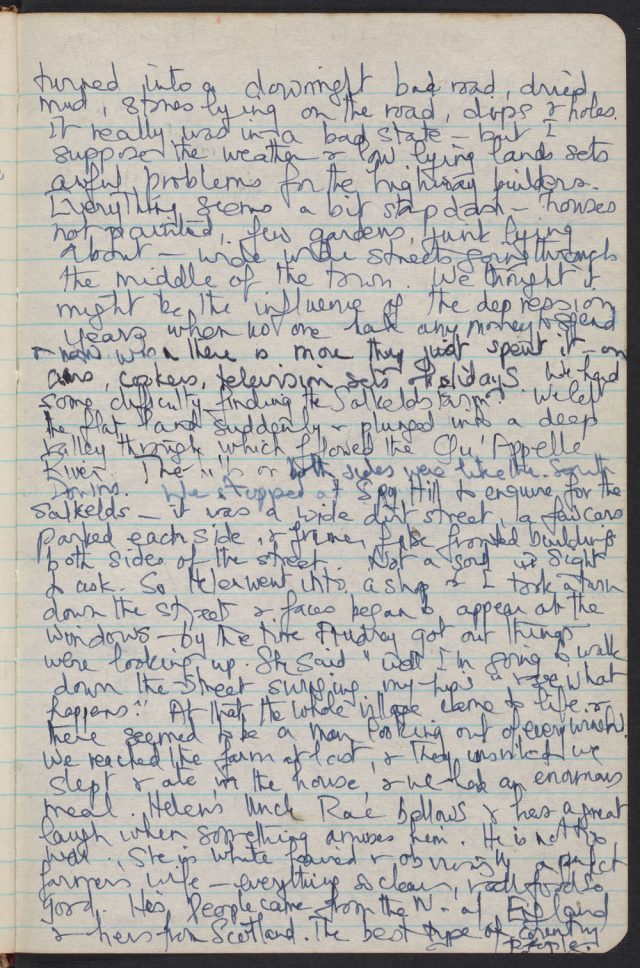 turned into a downright bad road, dried
mud, stones lying on the road, dips & holes.
It really was in a bad state – but I
suppose the weather & low lying lands sets
awful problems for the highway builders.
Everything seems a bit slapdash – houses
not painted, few gardens, junk lying
about – wide wide streets going through
the middle of the town. We thought it
might be the influence of the depression
years when no one had any money to spend
& now when there is more they just spent it on
cars, cookers, television sets & holidays. We had
some difficulty finding the Salkelds farm. We left
the flat land suddenly & plunged into a deep
valley through which flowed the Qu'Appelle
River. The hills on both sides were like the South
Downs. We stopped at Spy Hill to enquire for the
Salkelds – it was a wide dirt street, a few cars
parked each side, & frame, false fronted buildings
both sides of the street. Not a soul in sight
to ask. So Helen went into a shop & I took a turn
down the street & faces began to appear at the
windows – by the time Audrey got out things
were looking up. She said "well I'm going to walk
down the street swinging my hips & see what
happens". At that the whole village came to life &
there seemed to be a man looking out of every window.
We reached the farm at last, & they insisted we
slept & ate in the house, & we had an enormous
meal. Helens Uncle Rae bellows & has a great
laugh when something amuses him. He is not too
well. She is white haired & obviously a perfect
farmers wife – everything so clean, & all food so
good. His people came from the N. of England
& hers from Scotland. The best type of country
people.